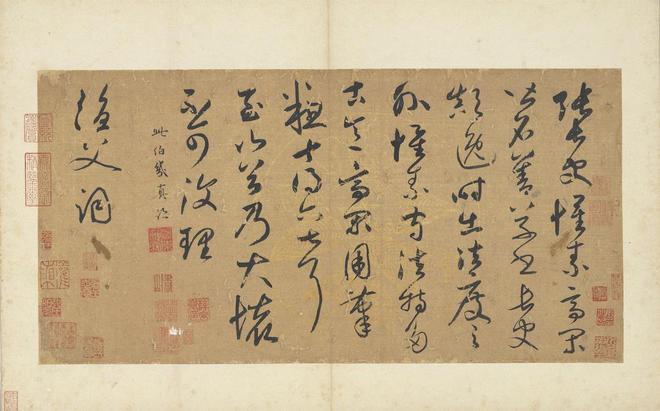 張長史懷素高閑
皆名善草書長史
顛逸時出法度之
外懷素守法特多
古意高閑用筆
粗十得六七耳
至山谷乃大壞
不可復理
此伯幾真跡
漁父詞